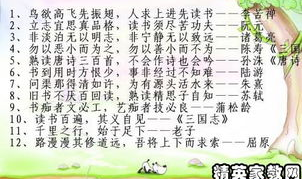 1、鸟欲高飞先振翅，人求上进先读书——李苦禅
2、立志宜思真品格，读书须尽苦功夫——阮元
3、非淡泊无以明志，非宁静无以致远——诸葛亮
4、勿以恶小而为之，勿以善小而不为——陈寿《三国志》
5、熟读唐诗三百首，不会作诗也会吟——孙洙《唐诗
6、书到用时方恨少，事非经过不知难——陆游
7、问渠那得清如许，为有源头活水来——朱熹
8、旧书不厌百回读，熟读精思子自知——苏轼
9、书痴者文必工，艺痴者技必良——蒲松龄
10、读书百遍，其义自见——《三国志》
11、千里之行，始于足下——老子
12、路漫漫其修道远，吾将上下而求索——屈原
精英家教网